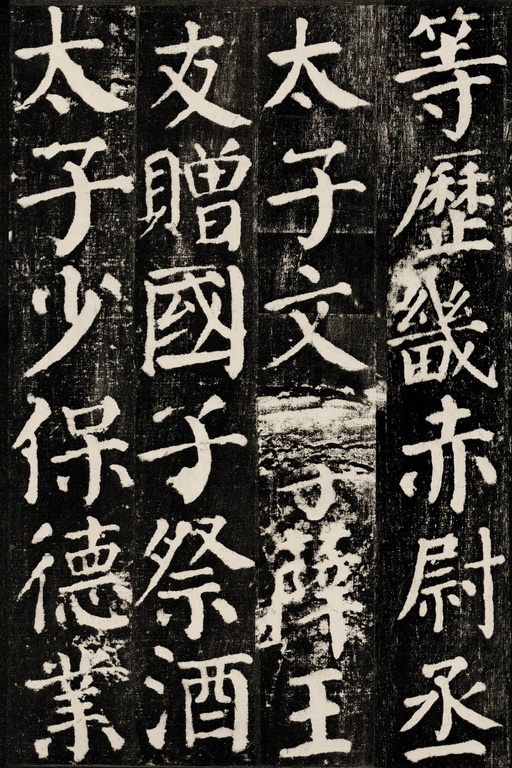 等歷畿赤尉丞
太子文薛王
友贈國子祭酒
太子少保德業